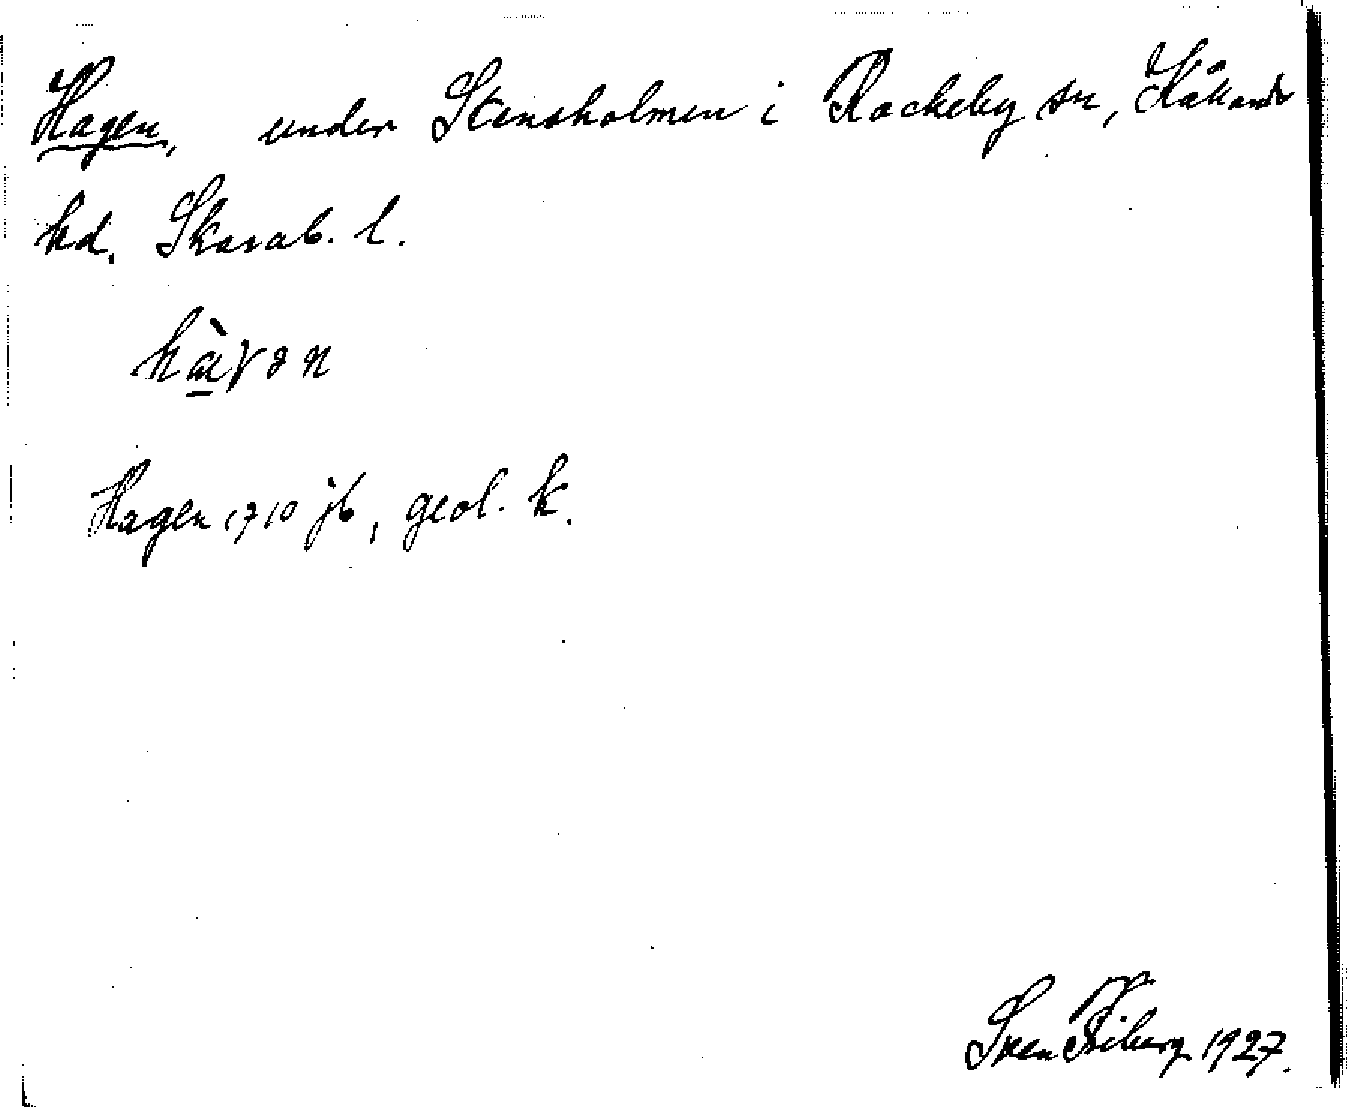 Hagen, under Stensholmen i Rackeby sn, Kållands
hd, Skarab. l.
hàγən
Hagen 1710 jb, geol. k.
Sven Friberg 1927.